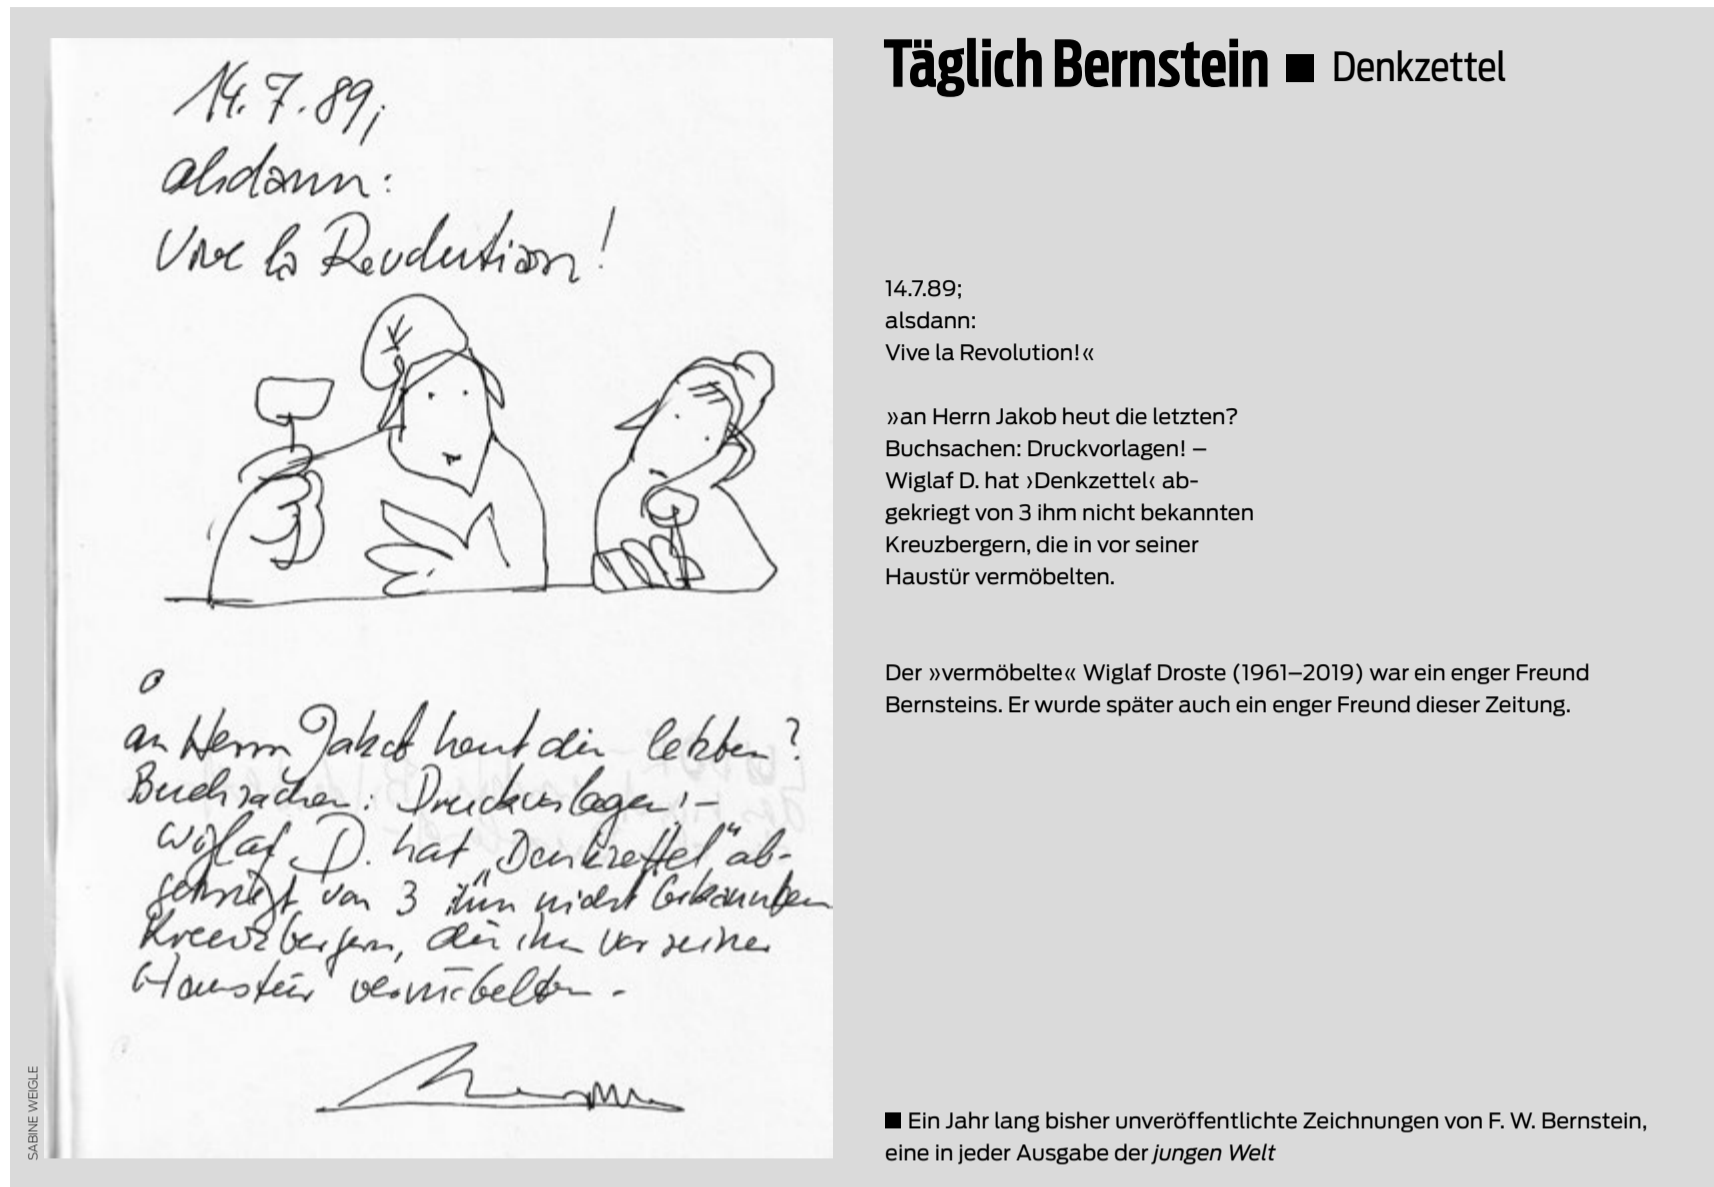 14.7.89;
alsdann:
Vive la Revolution!
an Herrn Jakob heut die letzten?
Buchsachen: Druckvorlagen! –
Wiglaf D. hat „Denkzettel“ ab-
gekriegt von 3 ihm nicht bekannten
Kreuzbergern, die ihn vor seiner
Haustür vermöbelten.
SABINE WEIGLE
Täglich Bernstein ■ Denkzettel
14.7.89;
alsdann:
Vive la Revolution!«
»an Herrn Jakob heut die letzten?
Buchsachen: Druckvorlagen! –
Wiglaf D. hat ›Denkzettel‹ ab-
gekriegt von 3 ihm nicht bekannten
Kreuzbergern, die in vor seiner
Haustür vermöbelten.
Der »vermöbelte« Wiglaf Droste (1961–2019) war ein enger Freund
Bernsteins. Er wurde später auch ein enger Freund dieser Zeitung.
■ Ein Jahr lang bisher unveröffentlichte Zeichnungen von F. W. Bernstein,
eine in jeder Ausgabe der jungen Welt